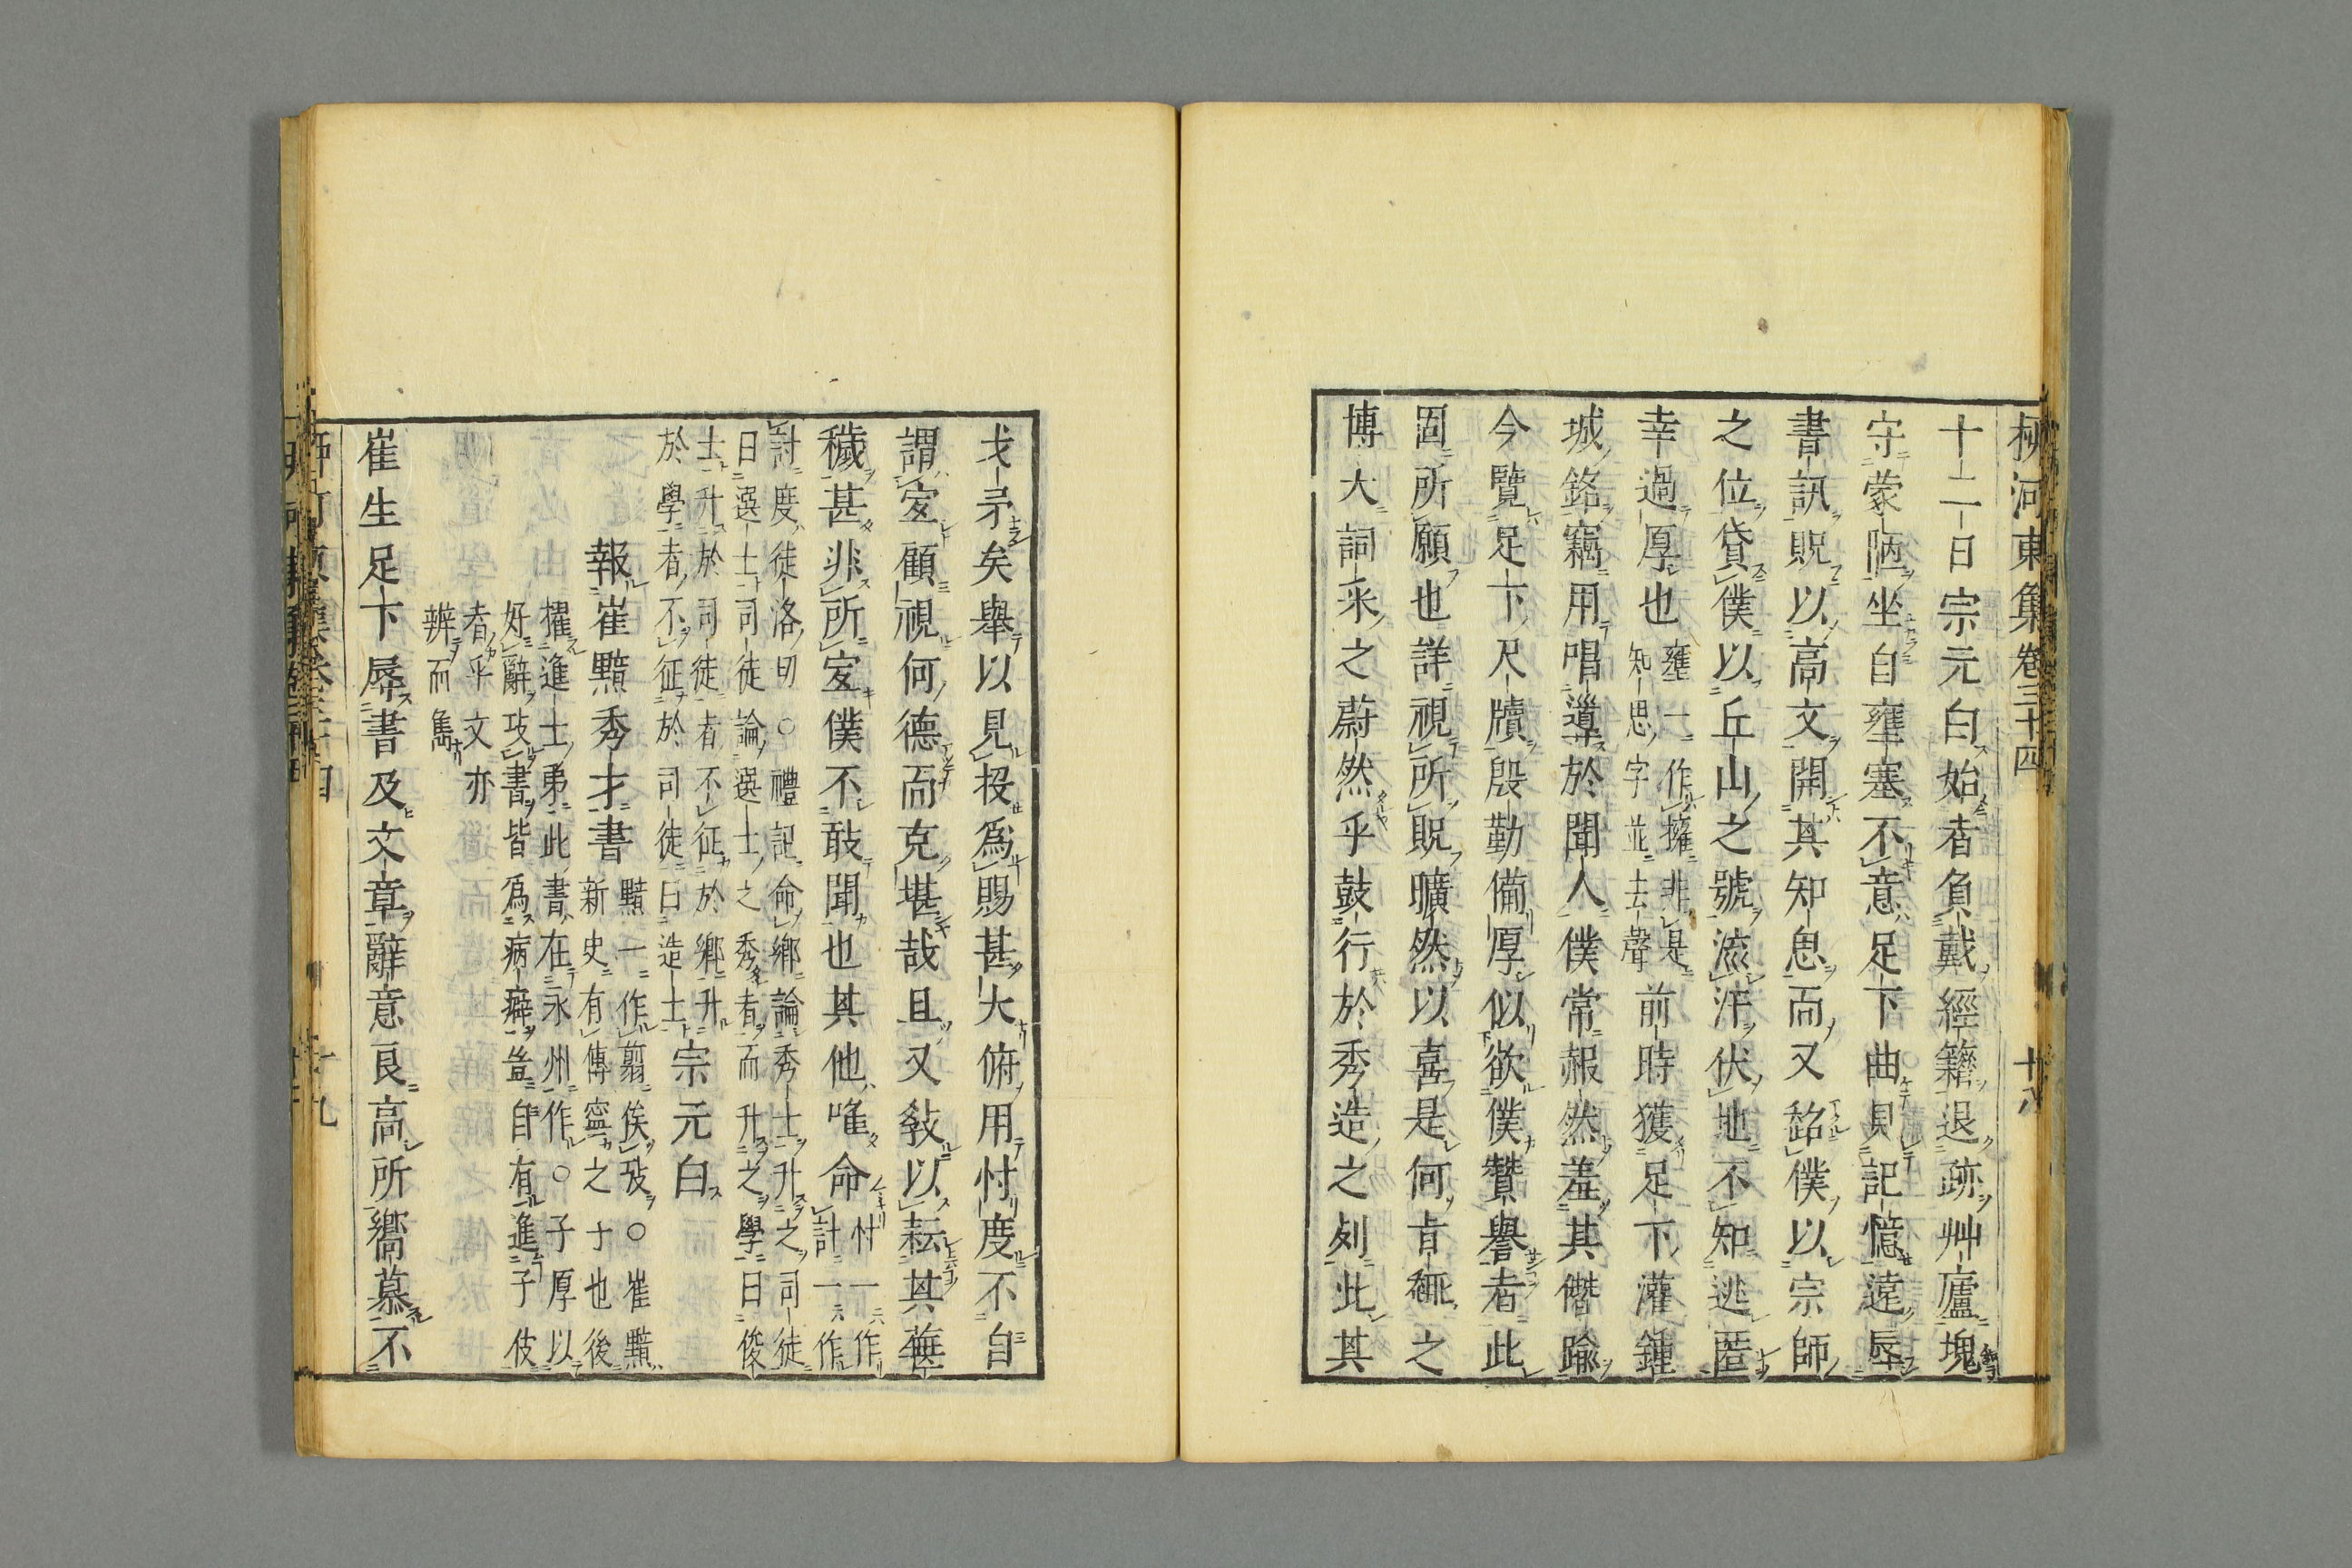 柳河東集卷三十四 十八
十二日宗元白始者負戴經籍退跡艸廬塊
守蒙陋坐自壅塞不意足下曲見記憶遠辱
書訊貺以高文開其知思而又銘僕以宗師
之位貸僕以丘山之號流汗伏地不知逃匿
幸過厚也壅一作擁非是
知思字並去聲前時獲足下灌鍾
城銘竊用唱導於聞人僕常赧然羞其僭踰
今覽足下尺牘殷勤備厚似欲僕贊譽者此
固所願也詳視所貺曠然以喜是何旨趣之
博大詞采之蔚然乎鼓行於秀造之列此其
戈矛矣舉以見投爲賜甚大俯用忖度不自
謂宜顧視何德而克堪哉且又敎以耘其蕪
穢甚非所宜僕不敢聞也其他唯命忖一作
討一作
討度徒洛切○禮記命鄉論秀士升之司徒
曰選士司徒論選士之秀者而升之學曰俊
士升於司徒者不征於鄉升
於學者不征於司徒曰造士宗元白
報崔黯秀才書黯一作翦俟攷○崔黯
新史有傳寧之子也後
擢進士弟此書在永州作○子厚以
好辭攻書皆爲病癖豈自有進子伎
者乎文亦
辨而雋
崔生足下辱書及文章辭意良高所嚮慕不